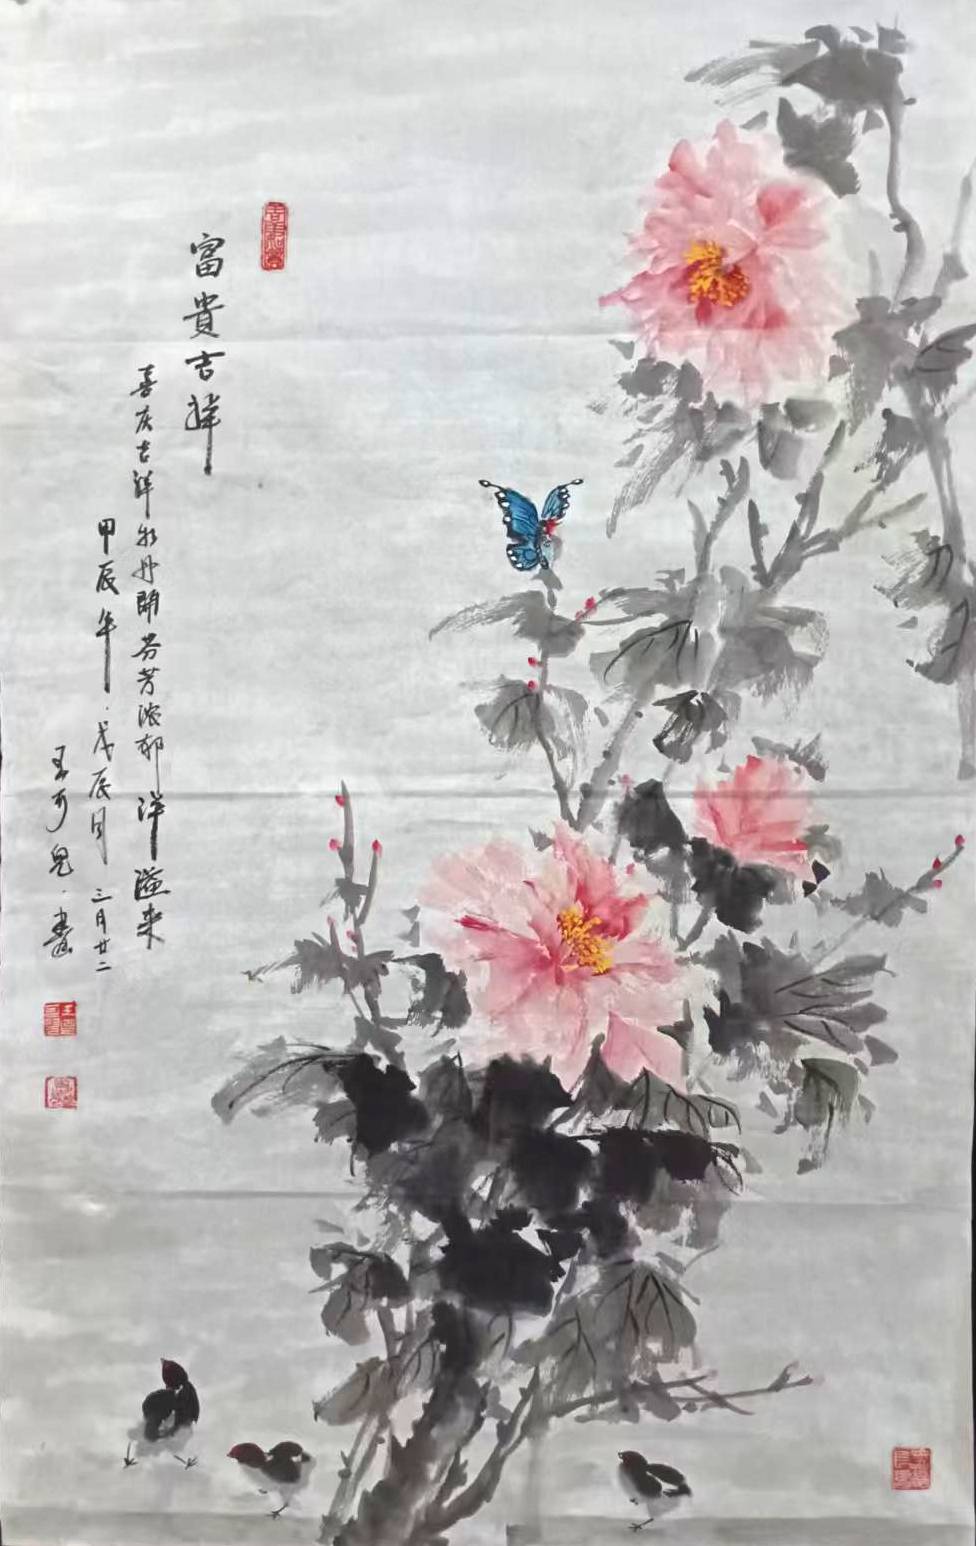 富貴吉祥
喜庆吉洋牡丹開芬芳浓郁洋溢来
甲辰年戊辰月三月廿二